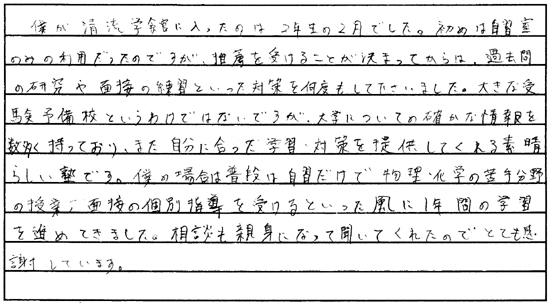 僕が清流学館に入ったのは2年生の2月でした。初めは自習室
のみの利用だったのですが、推薦を受けることが決まってからは、過去問
の研究や面接の練習といった対策を何度もしてくださいました。大きな受
験予備校というわけではないですが、大学についての確かな情報を
数多く持っており、また自分に合った学習・対策を提供してくれる素晴
らしい塾です。僕の場合は普段は自習だけで物理・化学の苦手分野
の授業、面接の個別指導を受けるといった風に1年間の学習
を進めてきました。相談も親身になって聞いてくれたのでとても感
謝しています。